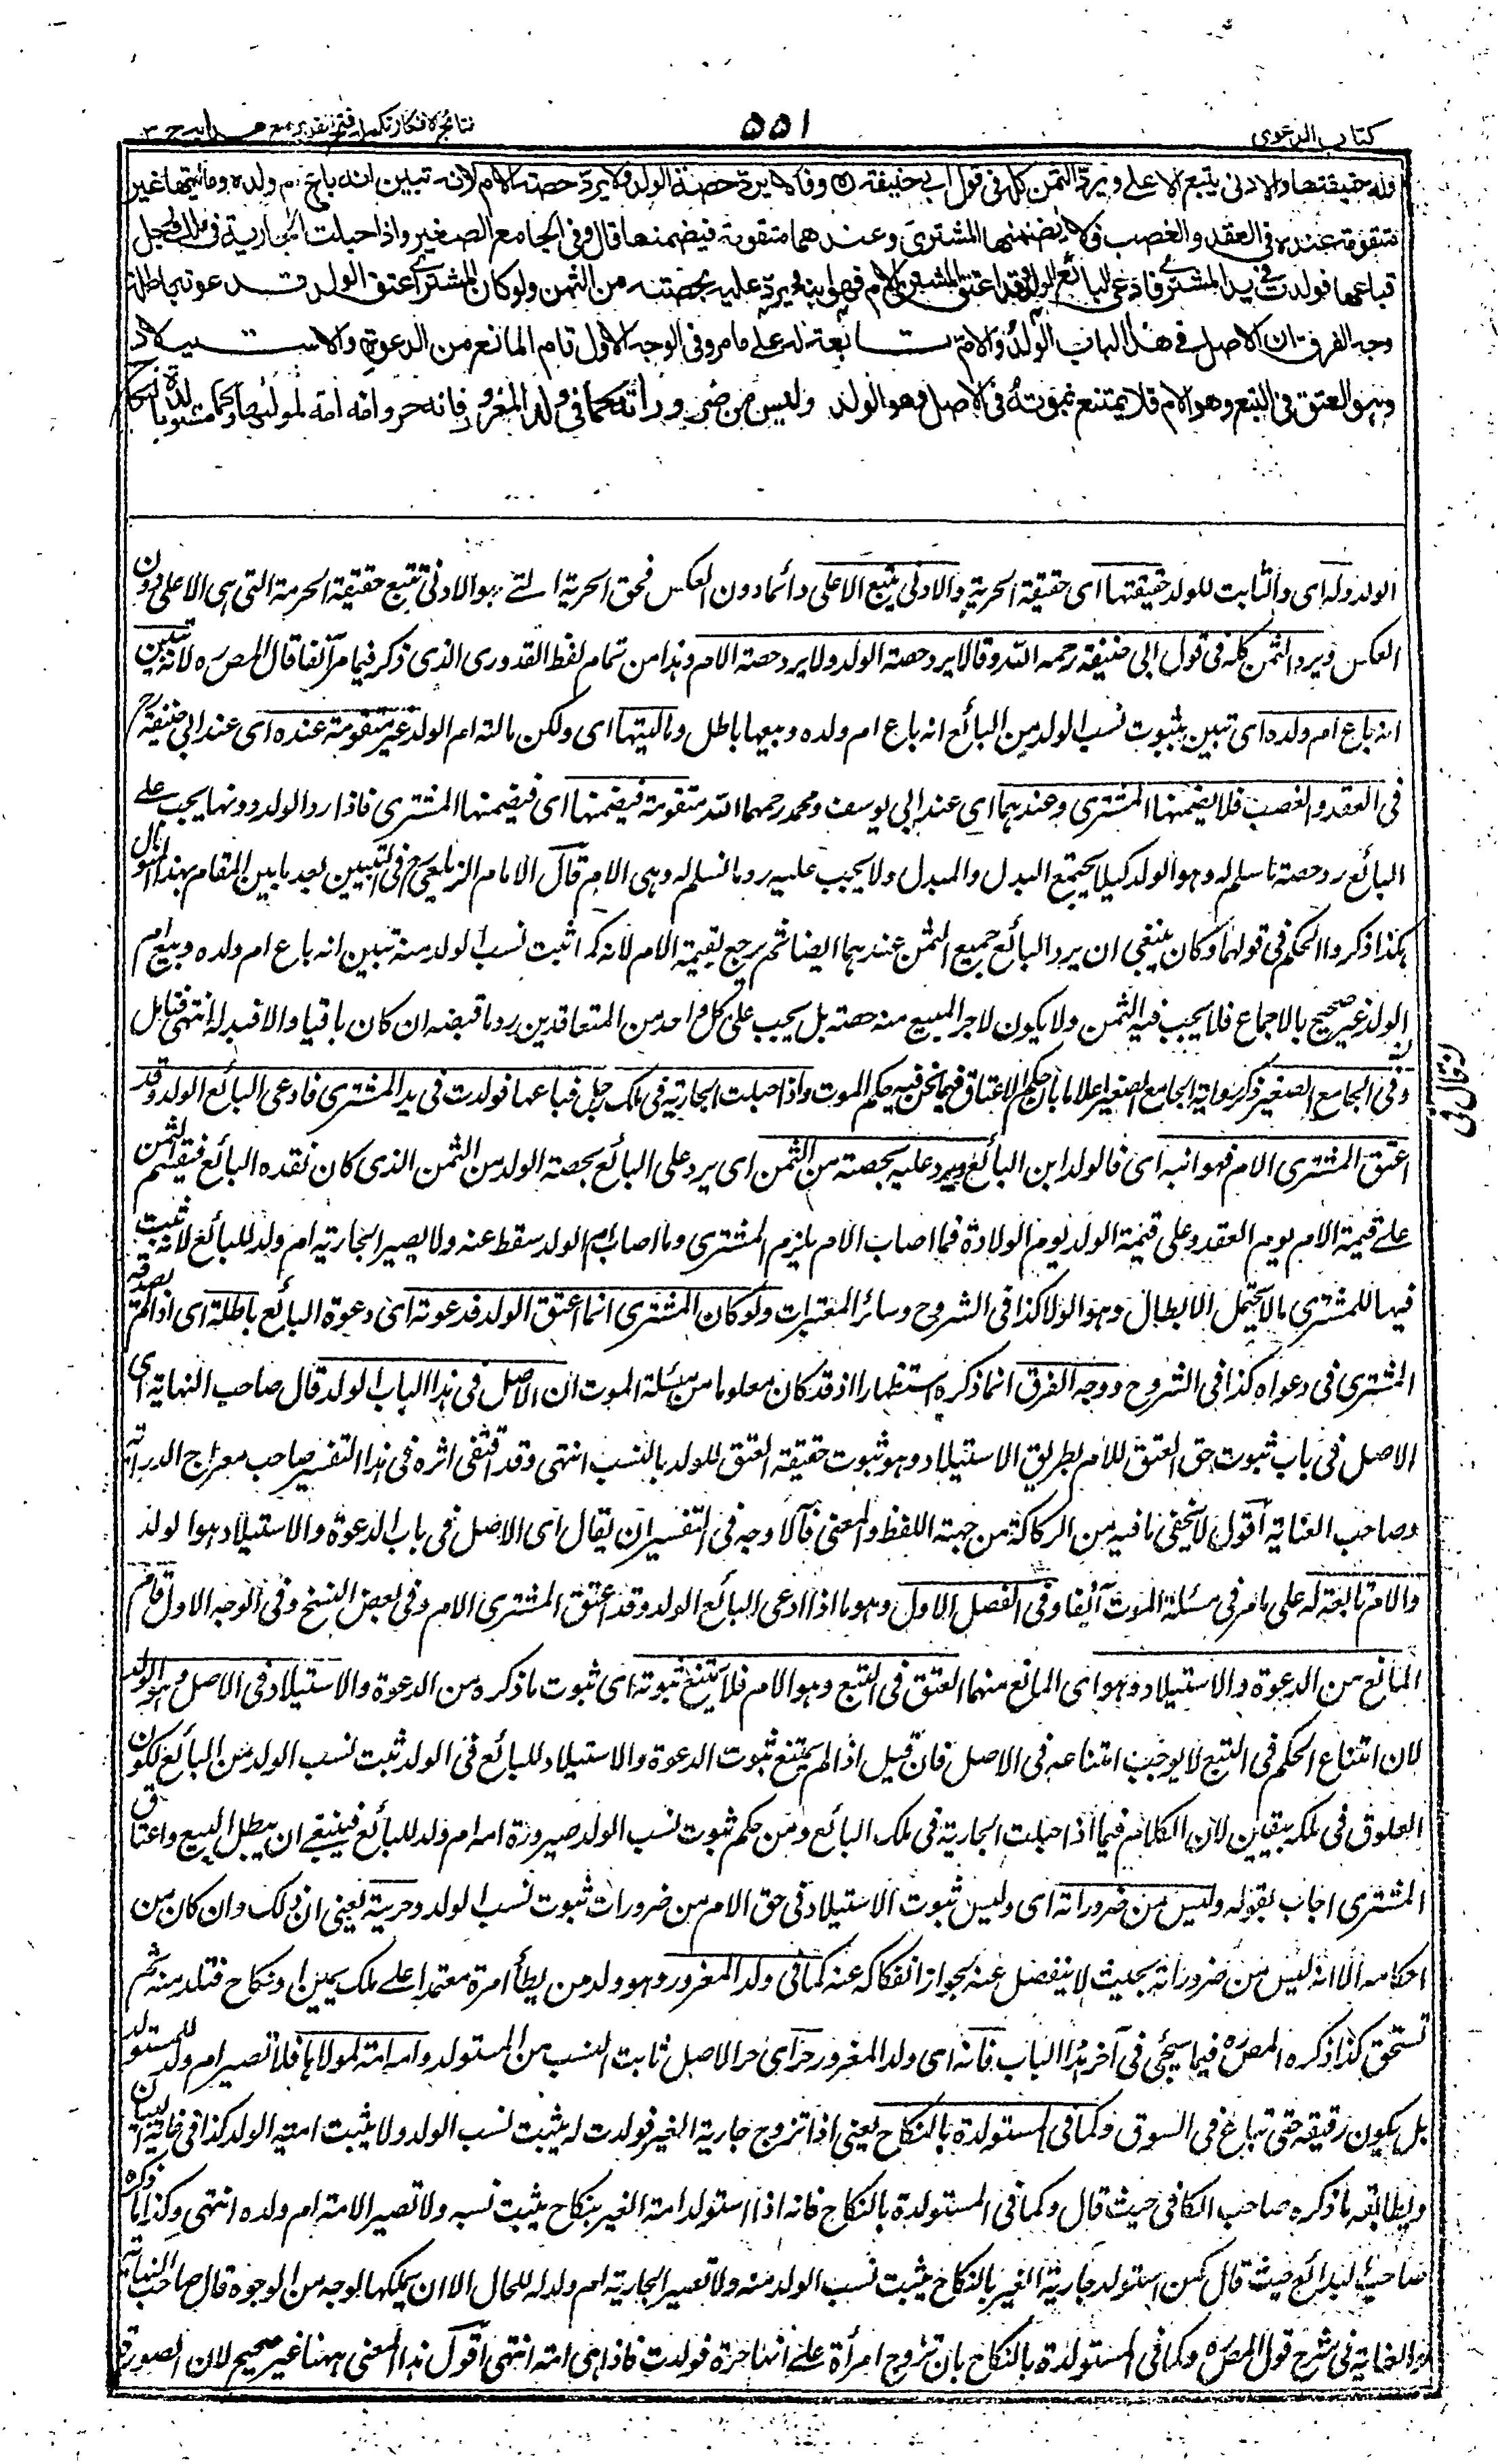 كتاب الدعوى
٥٥١
نتائج الافكار تكملة فتح القدير مع هداية ج ٣
وله حقيقتها والادنى يتبع الاعلى ويرد الثمن كله فى قول ابى حنيفة وقالا يرد حصة الولد ولا يرد حصة الام لانه تبين انه باع ام ولده وماليتها غير
متقومة عنده فى العقد والغصب فلا يضمنها المشترى وعندهما متقومة فيضمنها قال وفى الجامع الصغير واذا حبلت الجارية فى ملك رجل
فباعها فولدت فى يد المشترى فادعى البائع الولد وقد اعتق المشترى الام فهو ابنه ويرد عليه بحصته من الثمن ولو كان المشترى اعتق الولد فدعوته باطلة
وجه الفرق ان الاصل فى هذا الباب الولد والام تابعة له على ما مر وفى الوجه الاول قام المانع من الدعوة والاستيلاد
وهو العتق فى التبع وهو الام فلا يمتنع ثبوته فى الاصل وهو الولد وليس من ضروراته كما فى ولد المغرور فانه حر وامه امة لمولاها وكما فى المستولدة بالنكاح
الولد وله اى والثابت للولد حقيقتها اى حقيقة الحرية والادنى يتبع الاعلى دائما دون العكس فحق الحرية التى هو الادنى تتبع حقيقة الحرمة التى هى الاعلى دون
العكس ويرد الثمن كله فى قول ابى حنيفة رحمه الله وقالا يرد حصة الولد ولا يرد حصة الام وهذا من تمام لفظ القدورى الذى ذكر فيما مر آنفا قال المصره لانه تبين
انه باع ام ولده اى تبين بثبوت نسب الولد من البائع انه باع ام ولده وبيعها باطل وماليتها اى ولكن مالية ام الولد غير متقومة عنده اى عند ابى حنيفةرح
فى العقد والغصب فلا يضمنها المشترى وعندهما اى عند ابى يوسف ومحمد رحمهما الله متقومة فيضمنها اى فيضمنها المشترى فاذا رد الولد دونها يجب على
البائع رد حصة ما سلم له وهو الولد كيلا يجتمع البدل والمبدل ولا يجب عليه رد ما لم يسلم له وهى الام قال الامام الزيلعىرح فى التبيين بعد ما بين المقام بهذا المنوال
هكذا ذكروا الحكم فى قولهما وكان ينبغى ان يرد البائع جميع الثمن عندهما ايضا ثم يرجع بقيمة الام لانه لما ثبت نسب الولد منه تبين انه باع ام ولده وبيع ام
الولد غير صحيح بالاجماع فلا يجب فيه الثمن ولا يكون لاجزاء المبيع منه حصة بل يجب على كل واحد من المتعاقدين رد ما قبضه ان كان باقيا والا فبدله انتهى فتأمل
وفى الجامع الصغير ذكر رواية الجامع الصغير اعلاما بان حكم الاعتاق فيما نحن فيه حكم الموت واذا حبلت الجارية فى ملك رجل فباعها فولدت فى يد المشترى فادعى البائع الولد وقد
اعتق المشترى الام فهو ابنه اى فالولد ابن البائع ويرد عليه بحصته من الثمن اى يرد على البائع بحصة الولد من الثمن الذى كان نقده البائع فيقسم الثمن
على قيمة الام يوم العقد وعلى قيمة الولد يوم الولادة فما اصاب الام يلزم المشترى وما اصاب الولد سقط عنه ولا يصير الجارية ام ولد للبائع لانه ثبت
فيها للمشترى ما لا يحتمل الابطال وهو الولاء كذا فى الشروح وسائر المعتبرات ولو كان المشترى انما اعتق الولد فدعوته اى دعوة البائع باطلة اى اذا لم يصدقه
المشترى فى دعواه كذا فى الشروح ووجه الفرق انما ذكره استظهارا اذ قد كان معلوما من مسئلة الموت ان الاصل فى هذا الباب الولد قال صاحب النهاية اى
الاصل فى باب ثبوت حق العتق للام بطريق الاستيلاد وهو ثبوت حقيقة العتق للولد بالنسب انتهى وقد اقتفى اثره فى هذا التفسير صاحب معراج الدراية
وصاحب العناية اقول لا يخفى ما فيه من الركاكة من جهة اللفظ والمعنى فالاوجه فى التفسير ان يقال اى الاصل فى باب الدعوة والاستيلاد هو الولد
والام تابعة له على ما مر فى مسئلة الموت آنفا وفى الفصل الاول وهو ما اذا ادعى البائع الولد وقد اعتق المشترى الام وفى بعض النسخ وفى الوجه الاول قام
المانع من الدعوة والاستيلاد وهو اى المانع منهما العتق فى التبع وهو الام فلا يمتنع ثبوته اى ثبوت ما ذكره من الدعوة والاستيلاد فى الاصل وهو الولد
لان امتناع الحكم فى التبع لا يوجب امتناعه فى الاصل فان قيل اذا لم يمتنع ثبوت الدعوة والاستيلاد للبائع فى الولد ثبت نسب الولد من البائع لكون
العلوق فى ملكه بيقين لان الكلام فيما اذا حبلت الجارية فى ملك البائع ومن حكم ثبوت نسب الولد صيرورة امه ام ولد للبائع فينبغى ان يبطل البيع واعتاق
المشترى اجاب بقوله وليس من ضروراته اى وليس ثبوت الاستيلاد فى حق الام من ضرورات ثبوت نسب الولد وحريته يعنى ان ذلك وان كان من
احكامه الا انه ليس من ضروراته بحيث لا ينفصل عنه بجواز انفكاكه عنه كما فى ولد المغرور وهو ولد من يطأ امرة معتمدا على ملك يمين او نكاح فتلد منه ثم
تستحق كذا ذكره المصره فيما سيجئ فى آخر هذا الباب فانه اى ولد المغرور حر اى حر الاصل ثابت النسب من المستولد وامه امة لمولاها فلا تصير ام ولد للمستولد
بل يكون رقيقة حتى تباع فى السوق وكما فى المستولدة بالنكاح يعنى اذا تزوج جارية الغير فولدت له يثبت نسب الولد ولا يثبت امية الولد كذا فى غاية البيان
ويطابقه ما ذكره صاحب الكافى حيث قال وكما فى المستولدة بالنكاح فانه اذا استولد امة الغير بنكاح يثبت نسبه ولا تصير الامة ام ولده انتهى وكذا ما ذكره
صاحب البدائع حيث قال كمن استولد جارية الغير بالنكاح يثبت نسب الولد منه ولا تصير الجارية ام ولد له للحال الا ان يملكها بوجه من الوجوه قال صاحب النهاية
والعناية فى شرح قول المصره وكما فى المستولدة بالنكاح بان تزوج امرأة على انها حرة فولدت فاذا هى امة انتهى اقول هذا المعنى ههنا غير صحيح لان الصورة